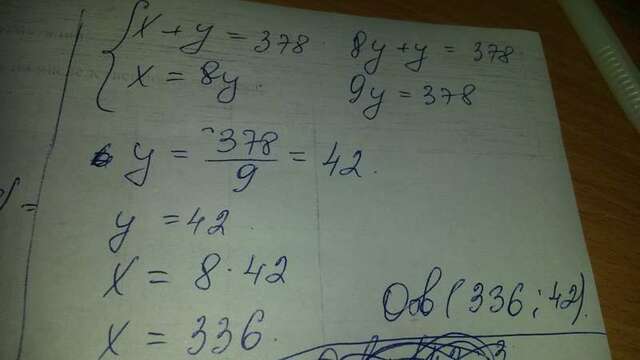 { x + y = 378. 8y + y = 378.
x = 8y. 9y = 378
y = 378/9 = 42.
y = 42.
x = 8 · 42
x = 336.
Отв (336 ; 42).